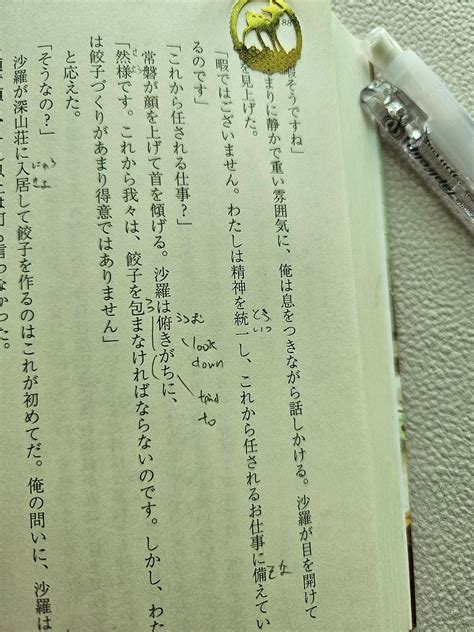 88
暇そうですね」
まりに静かで重い雰囲気に、俺は息をつきながら話しかける。沙羅が目を開けて
を見上げた。
「暇ではございません。わたしは精神を統一し、これから任されるお仕事に備えてい
そな
るのです」
「これから任される仕事?」
常磐が顔を上げて首を傾げる。沙羅は俯きがちに、
うつむ
look
down
tend
to
「然様です。これから我々は、餃子を包まなければならないのです。しかし、わた
は餃子づくりがあまり得意ではありません」
と応えた。
「そうなの?」
沙羅が深山荘に入居して餃子を作るのはこれが初めてだ。俺の問いに、沙羅は
言わなかった。